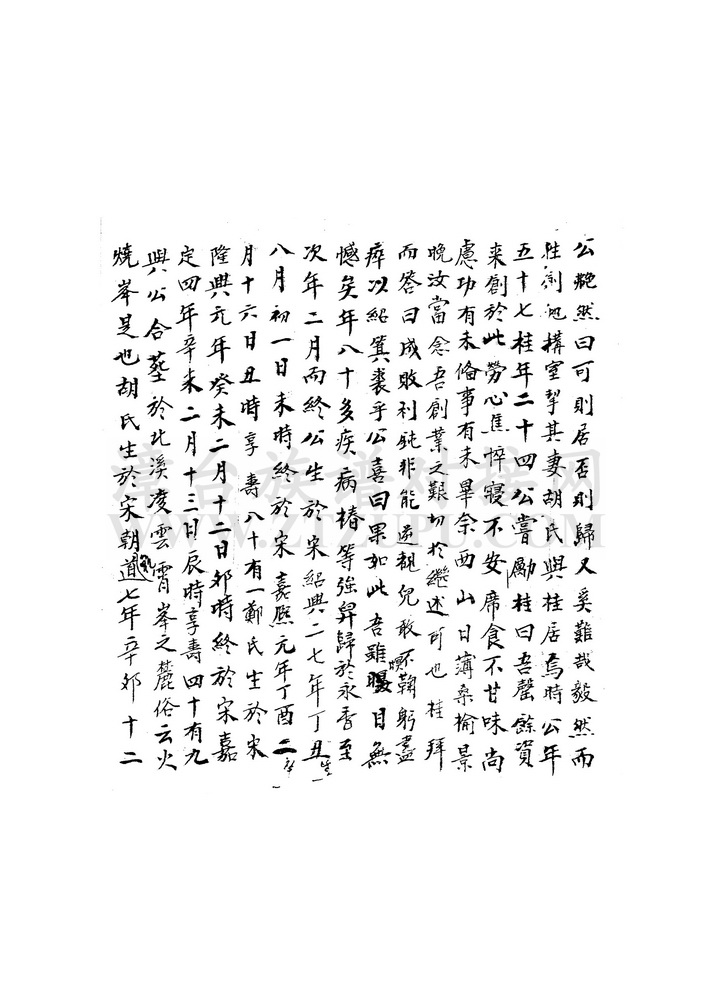 公艴然曰可則居否則歸又奚難哉毅然而
徃剏地搆室挈其妻胡氏與桂居焉時公年
五十七桂年二十四公嘗勵桂曰吾罄餘資
来創於此勞心焦悴寢不安席食不甘味尚
慮功有未俻事有未畢奈西山日薄桑榆景
晚汝當念吾創業之艱切於繼述可也桂拜
而答曰成敗利鈍非能逆覩兒敢不鞠躬盡
瘁以紹箕裘乎公喜曰果如此吾雖瞑目無
憾矣年八十多疾病椿等強舁歸於永香至
次年二月而終公生於宋紹興二七年丁丑
八月初一日未時終於宋嘉熈元年丁酉二
月十六日丑時享壽八十有一鄭氏生於宋
隆興元年癸未二月十二日夘時終於宋嘉
定四年辛未二月十三日辰時享壽四十有九
與公合葬於北溪凌雲霄峯之麓俗云火
燒峯是也胡氏生於宋朝乾道七年辛夘十二
漳台族谱对接网
WWW.ZTZUPU.COM